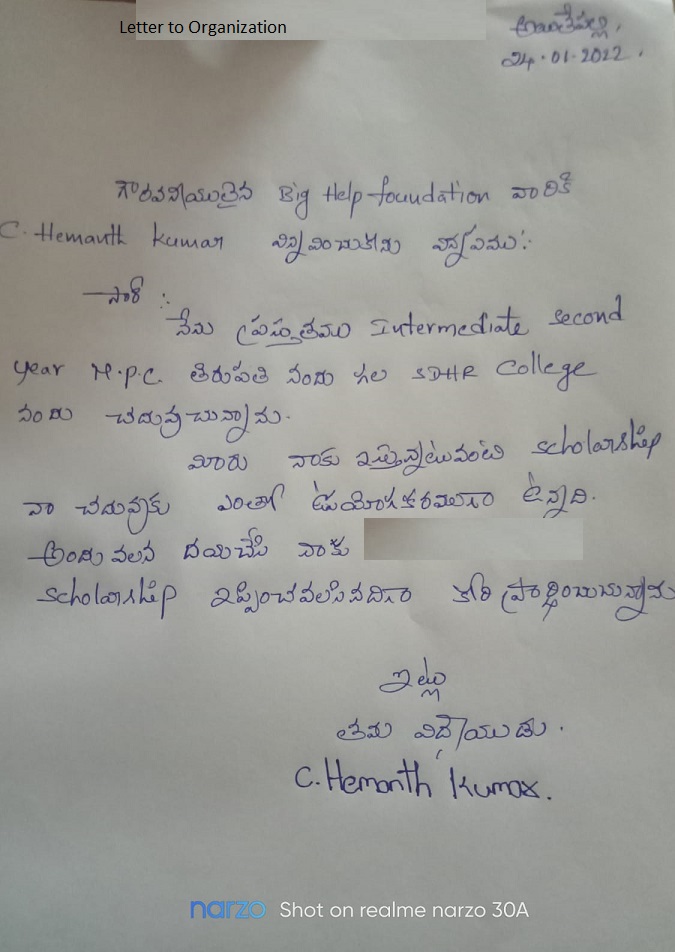 Letter to Organization
24.01.2022.
గౌరవనీయులైన Big Help foundation వారికి
C. Hemanth kumar విన్నవించుకొను విన్నపము:.
సార్ :.
నేను ప్రస్తుతము Intermediate second
year M.p.c. తిరుపతి నందు గల SDHR College
నందు చదువుచున్నాను.
మీరు నాకు ఇస్తున్నటువంటి scholarship
నా చదువుకు ఎంతో ఉపయోగకరముగా ఉన్నది.
అందువలన దయచేసి నాకు
scholarship ఇప్పించవలసినదిగా కోరి ప్రార్థించుచున్నాను
ఇట్లు
తమ విధేయుడు.
C. Hemanth Kumar.
narzo Shot on realme narzo 30A